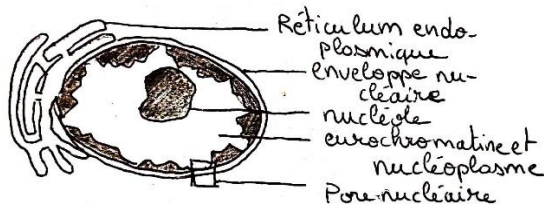 Réticulum endo-
plasmique
enveloppe nu-
cléaire
nucléole
eurochromatine et
nucléoplasme
Pore nucléaire